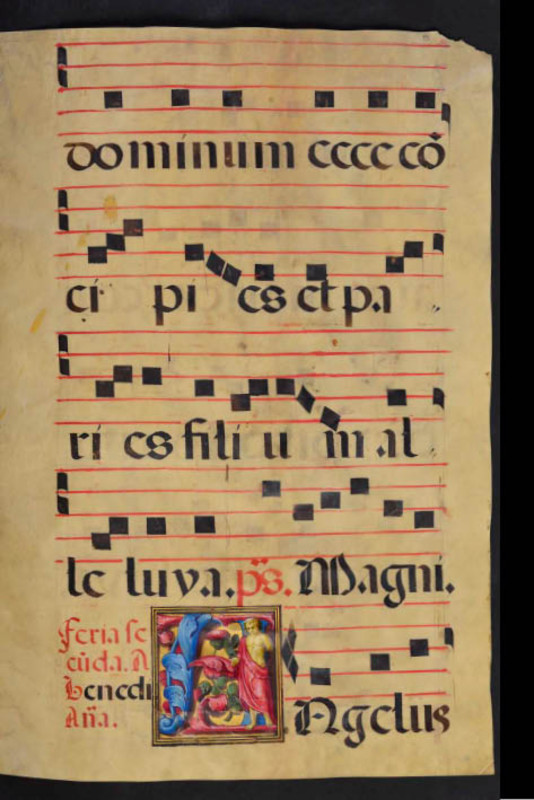 dominum ecce cō
ci pi es et pa
ri es fili u m al
le luya. p̄s. Magni.
feria se
cūda. A
benedi
Añā.
Angelus